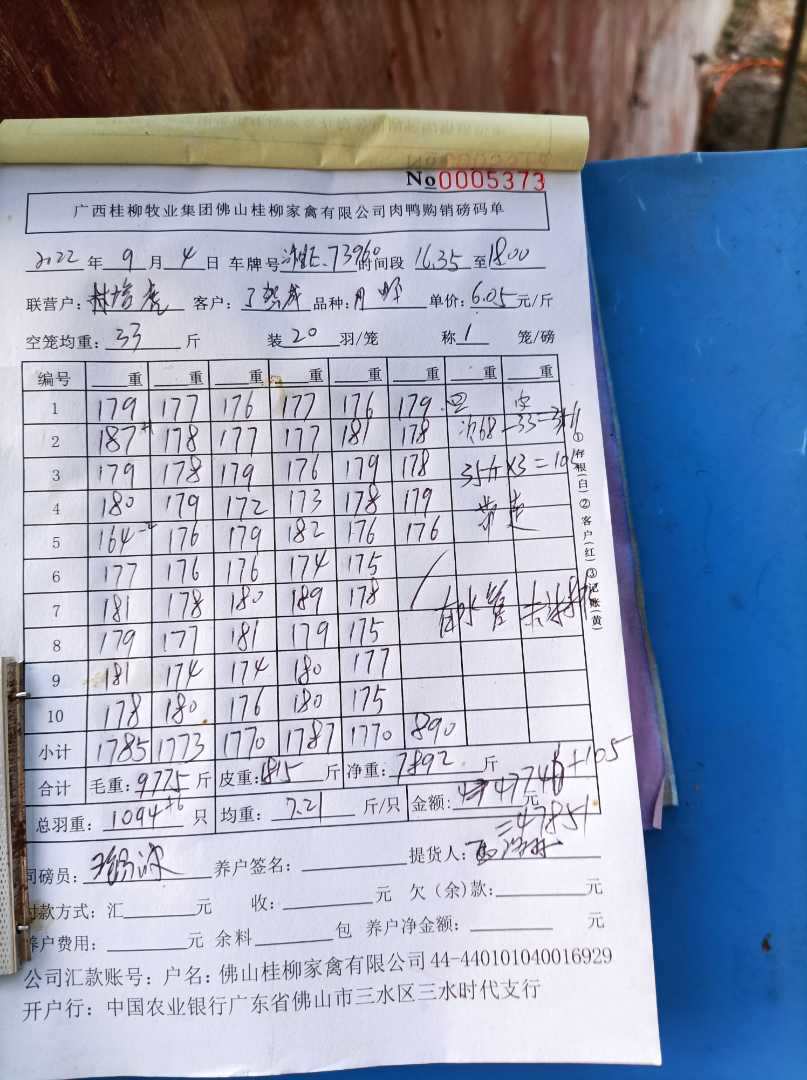 No0005373
广西桂柳牧业集团佛山桂柳家禽有限公司肉鸭购销磅码单
2022年9月4日 车牌号 73960 时间段 16.35 至 18.00
联营户: 客户: 品种: 单价: 6.05 元/斤
空笼均重: 33 斤 装 20 羽/笼 称 1 笼/磅
编号 重 重 重 重 重 重 重 重
1 179 177 176 177 176 179
2 187 178 177 177 181 178 68-33=
3 179 178 179 176 179 178 35斤×3=
4 180 179 172 173 178 179
5 164 176 179 182 176 176
6 177 176 176 174 175
7 181 178 180 189 178
8 179 177 181 179 175
9 181 174 174 180 177
10 178 180 176 180 175
小计 1785 1773 1770 1787 1770 890
合计 毛重: 9775 斤 皮重: 1815 斤 净重: 7892 斤
总羽重: 1094+6 只 均重: 7.21 斤/只 金额: 47746+105 元
=47851
司磅员: 养户签名: 提货人:
付款方式: 汇 元 收: 元 欠(余)款: 元
养户费用: 元 余料 包 养户净金额: 元
公司汇款账号: 户名: 佛山桂柳家禽有限公司 44-440101040016929
开户行: 中国农业银行广东省佛山市三水区三水时代支行
①存根(白)②客户(红)③记账(黄)